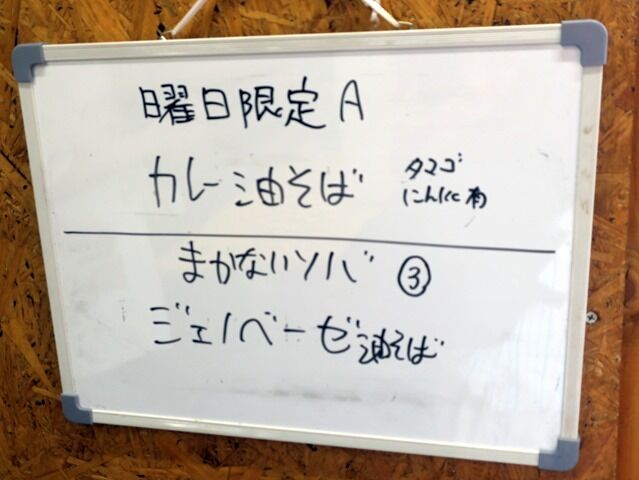 日曜日限定 A
カレー油そば
タマゴ
にんにく有
まかないソバ ③
ジェノベーゼ油そば